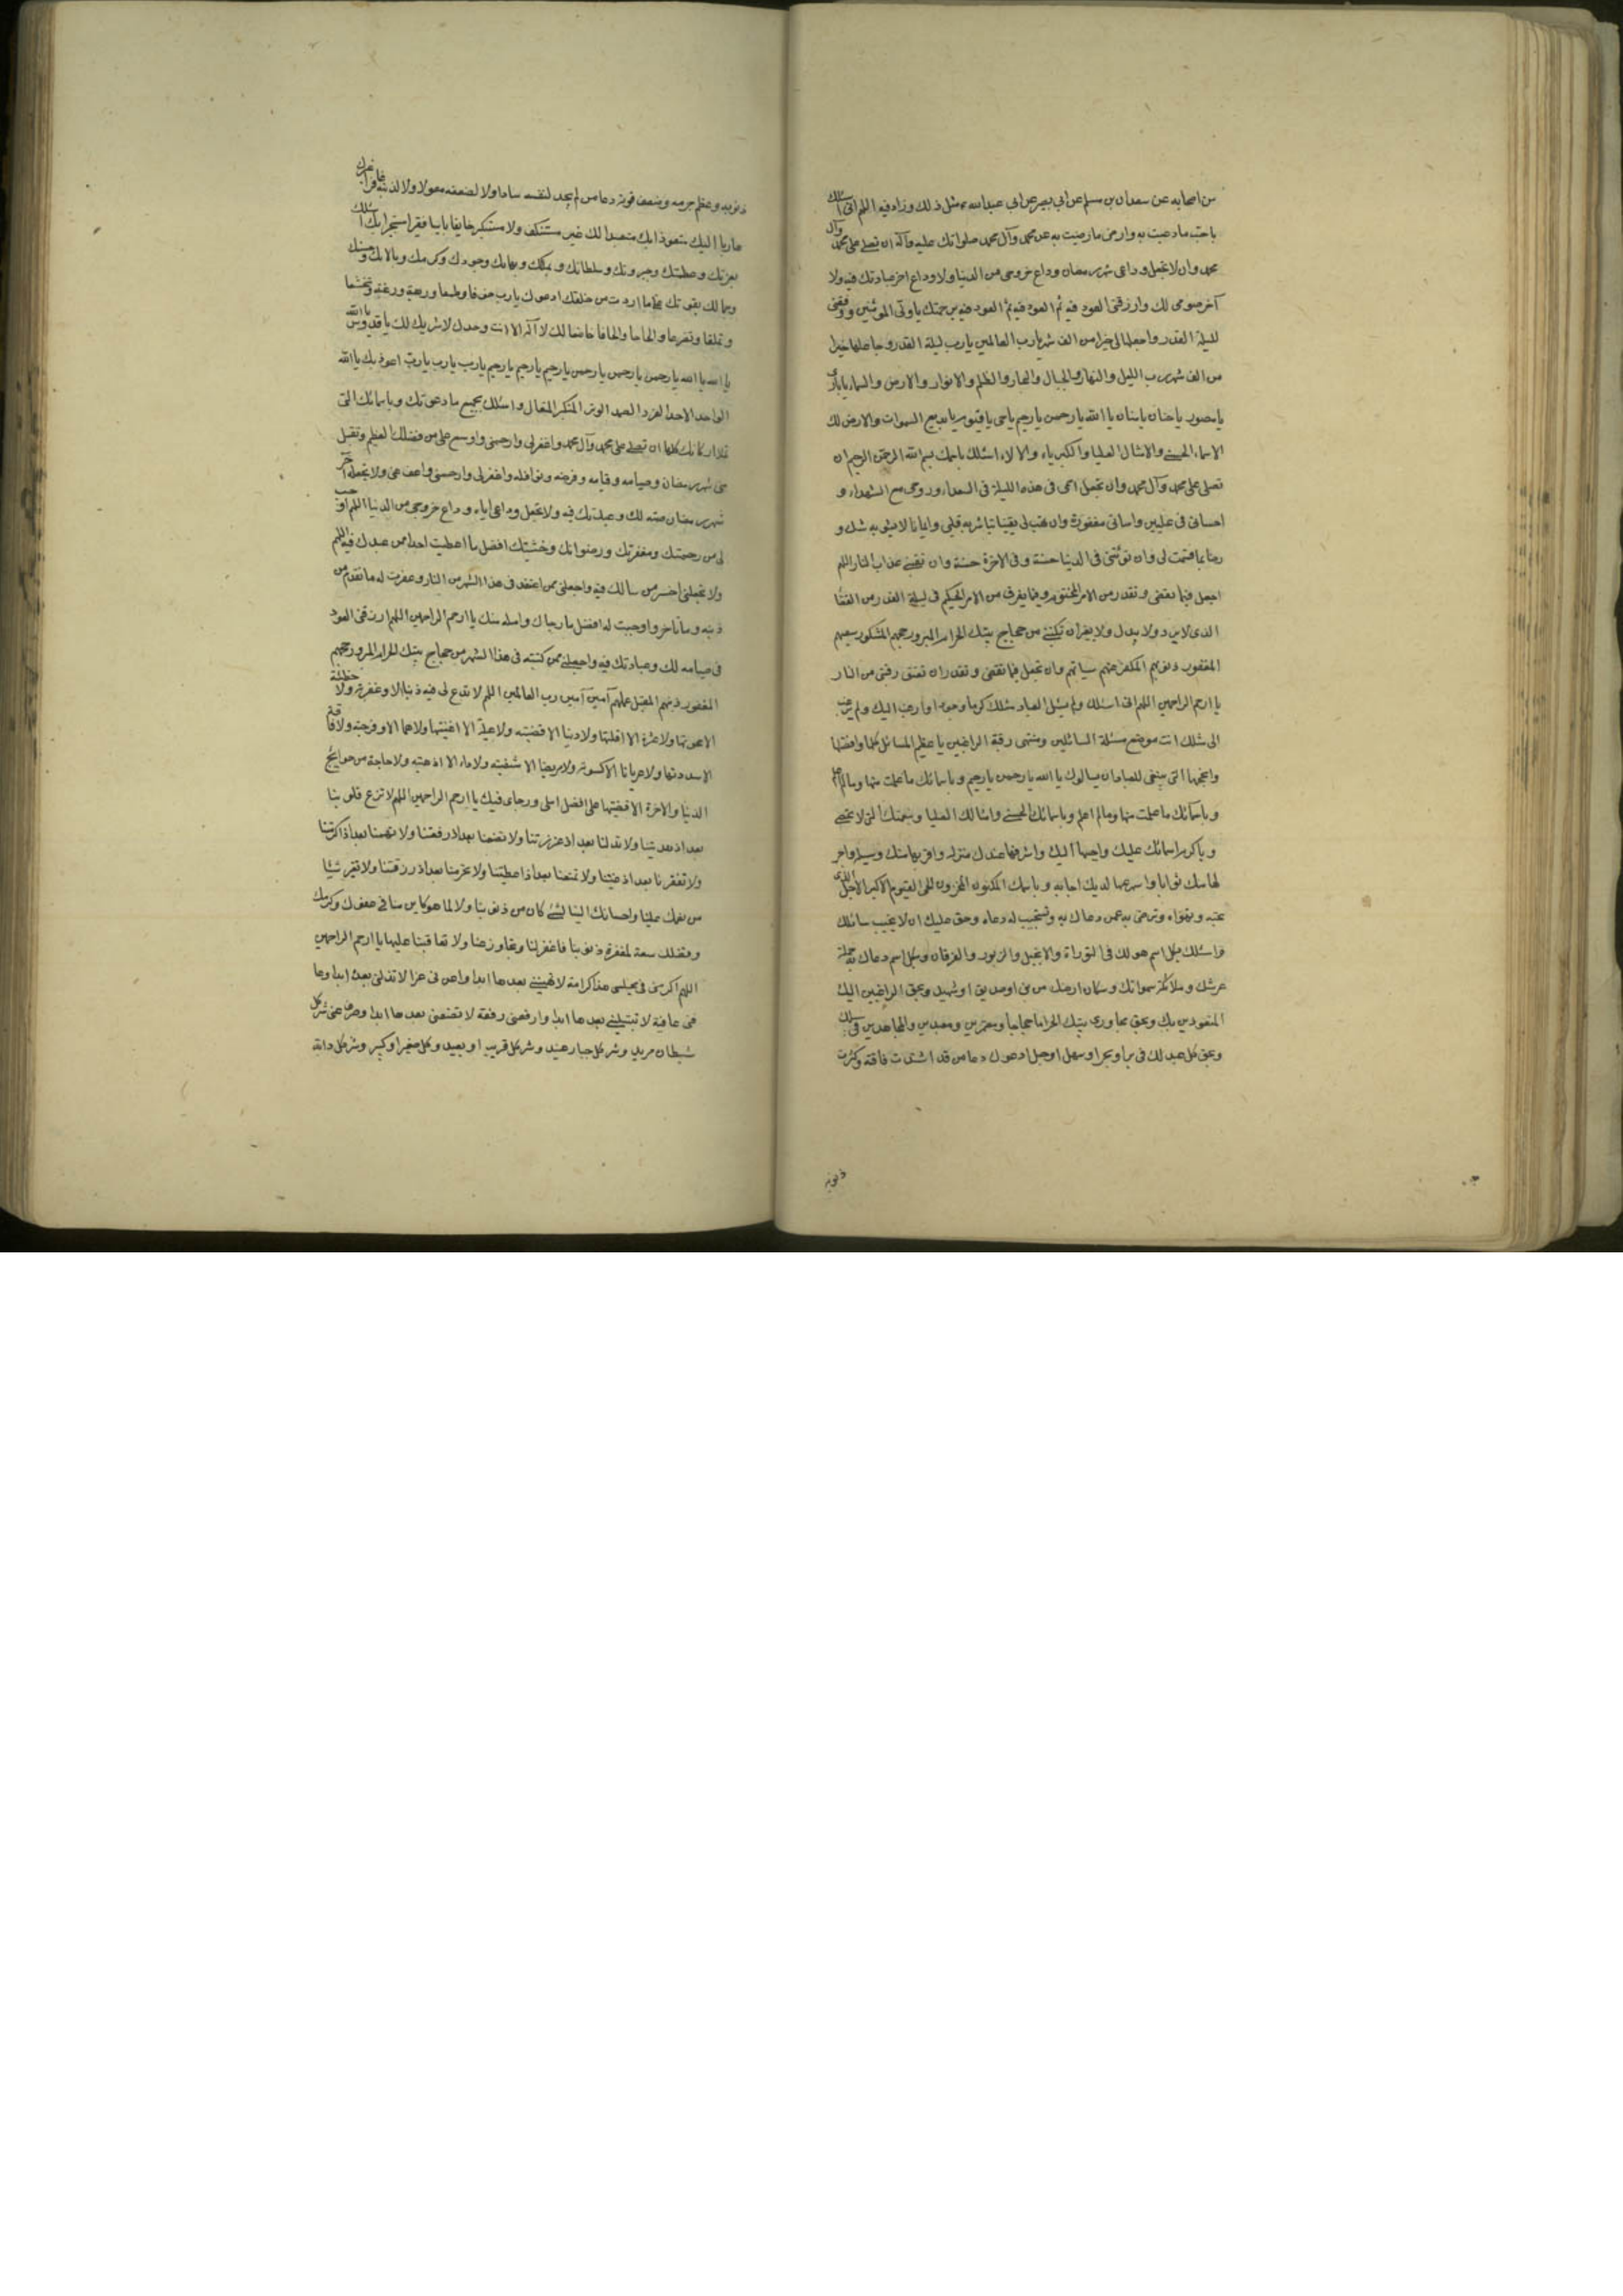 من اصحابه عن سعدان بن مسلم عن ابي بصير عن ابي عبدالله ع مثل ذلك وزاد فيه اللهم اني اسئلك
باحب ما دعيت به وارضى ما رضيت به عن محمد وآل محمد صلواتك عليه وآله ان تصلي على محمد وآل
محمد وان لا تجعل وداعي شهر رمضان وداع خروجي من الدنيا ولا وداع اخر عبادتك فيه ولا
آخر صومي لك وارزقني العود فيه ثم العود فيه ثم العود فيه برحمتك يا ولي المؤمنين ووفقني
لليلة القدر واجعلها لي خيرا من الف شهر يا رب العالمين يا رب ليلة القدر وجاعلها خيرا
من الف شهر رب الليل والنهار والجبال والبحار والظلم والانوار والارض والسماء يا بارئ
يا مصور يا حنان يا منان يا الله يا رحمن يا رحيم يا حي يا قيوم يا بديع السموات والارض لك
الاسماء الحسنى والامثال العليا والكبرياء والالاء اسئلك باسمك بسم الله الرحمن الرحيم ان
تصلي على محمد وآل محمد وان تجعل اسمي في هذه الليلة في السعداء وروحي مع الشهداء و
احساني في عليين واسائتي مغفورة وان تهب لي يقينا تباشر به قلبي وايمانا لا يشوبه شك و
رضا بما قسمت لي وان تؤتني في الدنيا حسنة وفي الاخرة حسنة وان تقيني عذاب النار اللهم
اجعل فيما تقضي وتقدر من الامر المحتوم وفيما يفرق من الامر الحكيم في ليلة القدر من القضا
الذي لا يرد ولا يبدل ولا يغير ان تكتبني من حجاج بيتك الحرام المبرور حجهم المشكور سعيهم
المغفور ذنوبهم المكفر عنهم سياتهم وان تجعل فيما تقضي وتقدر ان تعتق رقبتي من النار
يا ارحم الراحمين اللهم اني اسئلك ولم يسئل العباد مثلك كرما وجودا وارغب اليك ولم يرغب
الى مثلك انت موضع مسئلة السائلين ومنتهى رغبة الراغبين يا عظيم المسائل كلها وافضلها
وانجحها التي ينبغي للعباد ان يسالوك يا الله يا رحمن يا رحيم وباسمائك ما علمت منها وما لم اعلم
وباسمائك ما علمت منها وما لم اعلم وباسمائك الحسنى وامثالك العليا وبنعمتك التي لا تحصى
وباكرم اسمائك عليك واحبها اليك واشرفها عندك منزلة واقربها منك وسيلة واجز
لها منك ثوابا واسرعها لديك اجابة وباسمك المكنون المخزون الحي القيوم الاكبر الاجل الذي
تحبه وتهواه وترضى به عمن دعاك به وتستجيب له دعاءه وحق عليك ان لا تخيب سائلك
واسئلك بكل اسم هو لك في التوراة والانجيل والزبور والفرقان وبكل اسم دعاك به حملة
عرشك وملائكة سمواتك وسكان ارضك من نبي او صديق او شهيد وبحق الراغبين اليك
المتعوذين بك وبحق مجاوري بيتك الحرام حجاجا ومعتمرين ومقدسين والمجاهدين في سبيلك
وبحق كل عبد لك في بر او بحر او سهل او جبل ادعوك دعاء من قد اشتدت فاقته وكثرت
ذنوبه
ذنوبه وعظم جرمه وضعف قوته دعاء من لم يجد لنفسه سادا ولا لضعفه معولا ولا لذنبه غافرا غيرك
هاربا اليك متعوذا بك متعبدا لك غير مستنكف ولا مستكبر خائفا بائسا فقيرا مستجيرا بك اسئلك
بعزتك وعظمتك وجبروتك وسلطانك وبملكك وبهائك وجودك وكرمك وبالائك وحسنك
وجمالك بقوتك على ما اردت من خلقك ادعوك يا رب خوفا وطمعا ورهبة ورغبة وتخشعا
وتملقا وتضرعا والحاحا والحافا خاضعا لك لا آله الا انت وحدك لا شريك لك يا قدوس يا الله
يا الله يا الله يا رحمن يا رحمن يا رحمن يا رحيم يا رحيم يا رحيم يا رب يا رب يا رب اعوذ بك يا الله
الواحد الاحد الفرد الصمد الوتر المتكبر المتعال واسئلك بجميع ما دعوتك وباسمائك التي
تملا اركانك كلها ان تصلي على محمد وآل محمد واغفر لي وارحمني واوسع علي من فضلك العظيم وتقبل
مني شهر رمضان وصيامه وقيامه وفرضه ونوافله واغفر لي وارحمني واعف عني ولا تجعله آخر
شهر رمضان صمته لك وعبدتك فيه ولا تجعل وداعي اياه وداع خروجي من الدنيا اللهم اوجب
لي من رحمتك ومغفرتك ورضوانك وخشيتك افضل ما اعطيت احدا ممن عبدك فيه اللهم
ولا تجعلني اخسر من سالك فيه واجعلني ممن اعتقته في هذا الشهر من النار وغفرت له ما تقدم من
ذنبه وما تاخر واوجبت له افضل ما رجاك وامله منك يا ارحم الراحمين اللهم ارزقني العود
في صيامه لك وعبادتك فيه واجعلني ممن كتبته في هذا الشهر من حجاج بيتك الحرام المبرور حجهم
المغفور ذنبهم المتقبل عملهم آمين آمين رب العالمين اللهم لا تدع لي فيه ذنبا الا وغفرته ولا خطيئة
الا محوتها ولا عثرة الا اقلتها ولا دينا الا قضيته ولا عيلة الا اغنيتها ولا هما الا فرجته ولا فاقة
الا سددتها ولا عريانا الا كسوته ولا مريضا الا شفيته ولا داء الا اذهبته ولا حاجة من حوايج
الدنيا والاخرة الا قضيتها على افضل املي ورجاي فيك يا ارحم الراحمين اللهم لا تزغ قلوبنا
بعد اذ هديتنا ولا تذلنا بعد اذ عززتنا ولا تضعنا بعد اذ رفعتنا ولا تهنا بعد اذ اكرمتنا
ولا تفقرنا بعد اذ اغنيتنا ولا تمنعنا بعد اذ اعطيتنا ولا تحرمنا بعد اذ رزقتنا ولا تغير شيئا
من نعمك علينا واحسانك الينا لشئ كان من ذنوبنا ولا لما هو كاين منا في عفوك وكرمك
وفضلك سعة لمغفرة ذنوبنا فاغفر لنا وتجاوز عنا ولا تعاقبنا عليها يا ارحم الراحمين
اللهم اكرمني في مجلسي هذا كرامة لا تهينني بعدها ابدا واعزني عزا لا تذلني بعده ابدا وعا
فني عافية لا تبتليني بعدها ابدا وارفعني رفعة لا تضعني بعدها ابدا واصرف عني شر كل
شيطان مريد وشر كل جبار عنيد وشر كل قريب او بعيد وكل صغير او كبير وشر كل دابة